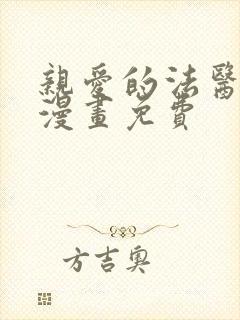 親愛的法醫
漫畫免費
方吉奧